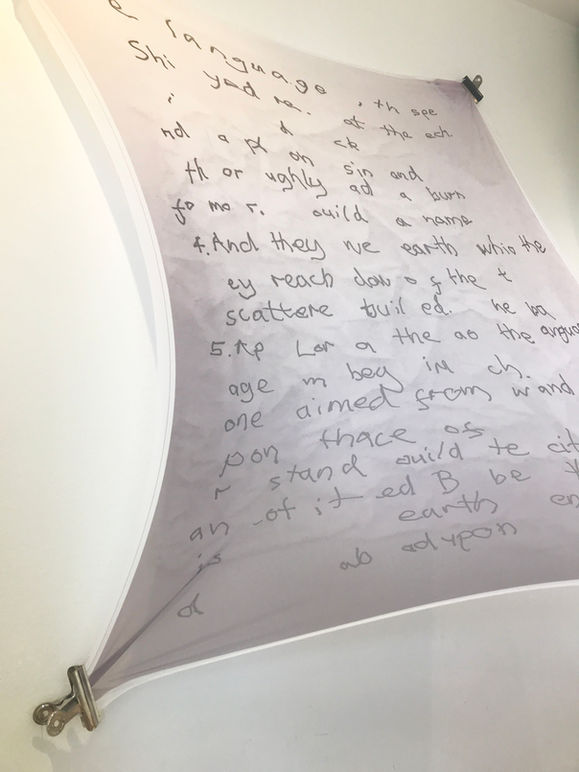 e language
Shi yad re. , th see
i d at the ech.
nd a pl on ck
th or ughly sin and
fo me r. ad a burn
ouild a name
4. And they we earth whio the
ey reach dow o g the t
scattere buil ed. he ba
5. Ap Lor a the ao the anguag
age m beg in ch.
one aimed from w and
pon thace of
r stand ouild te cit
an of it ed B be
is earth en
ab adypon
d